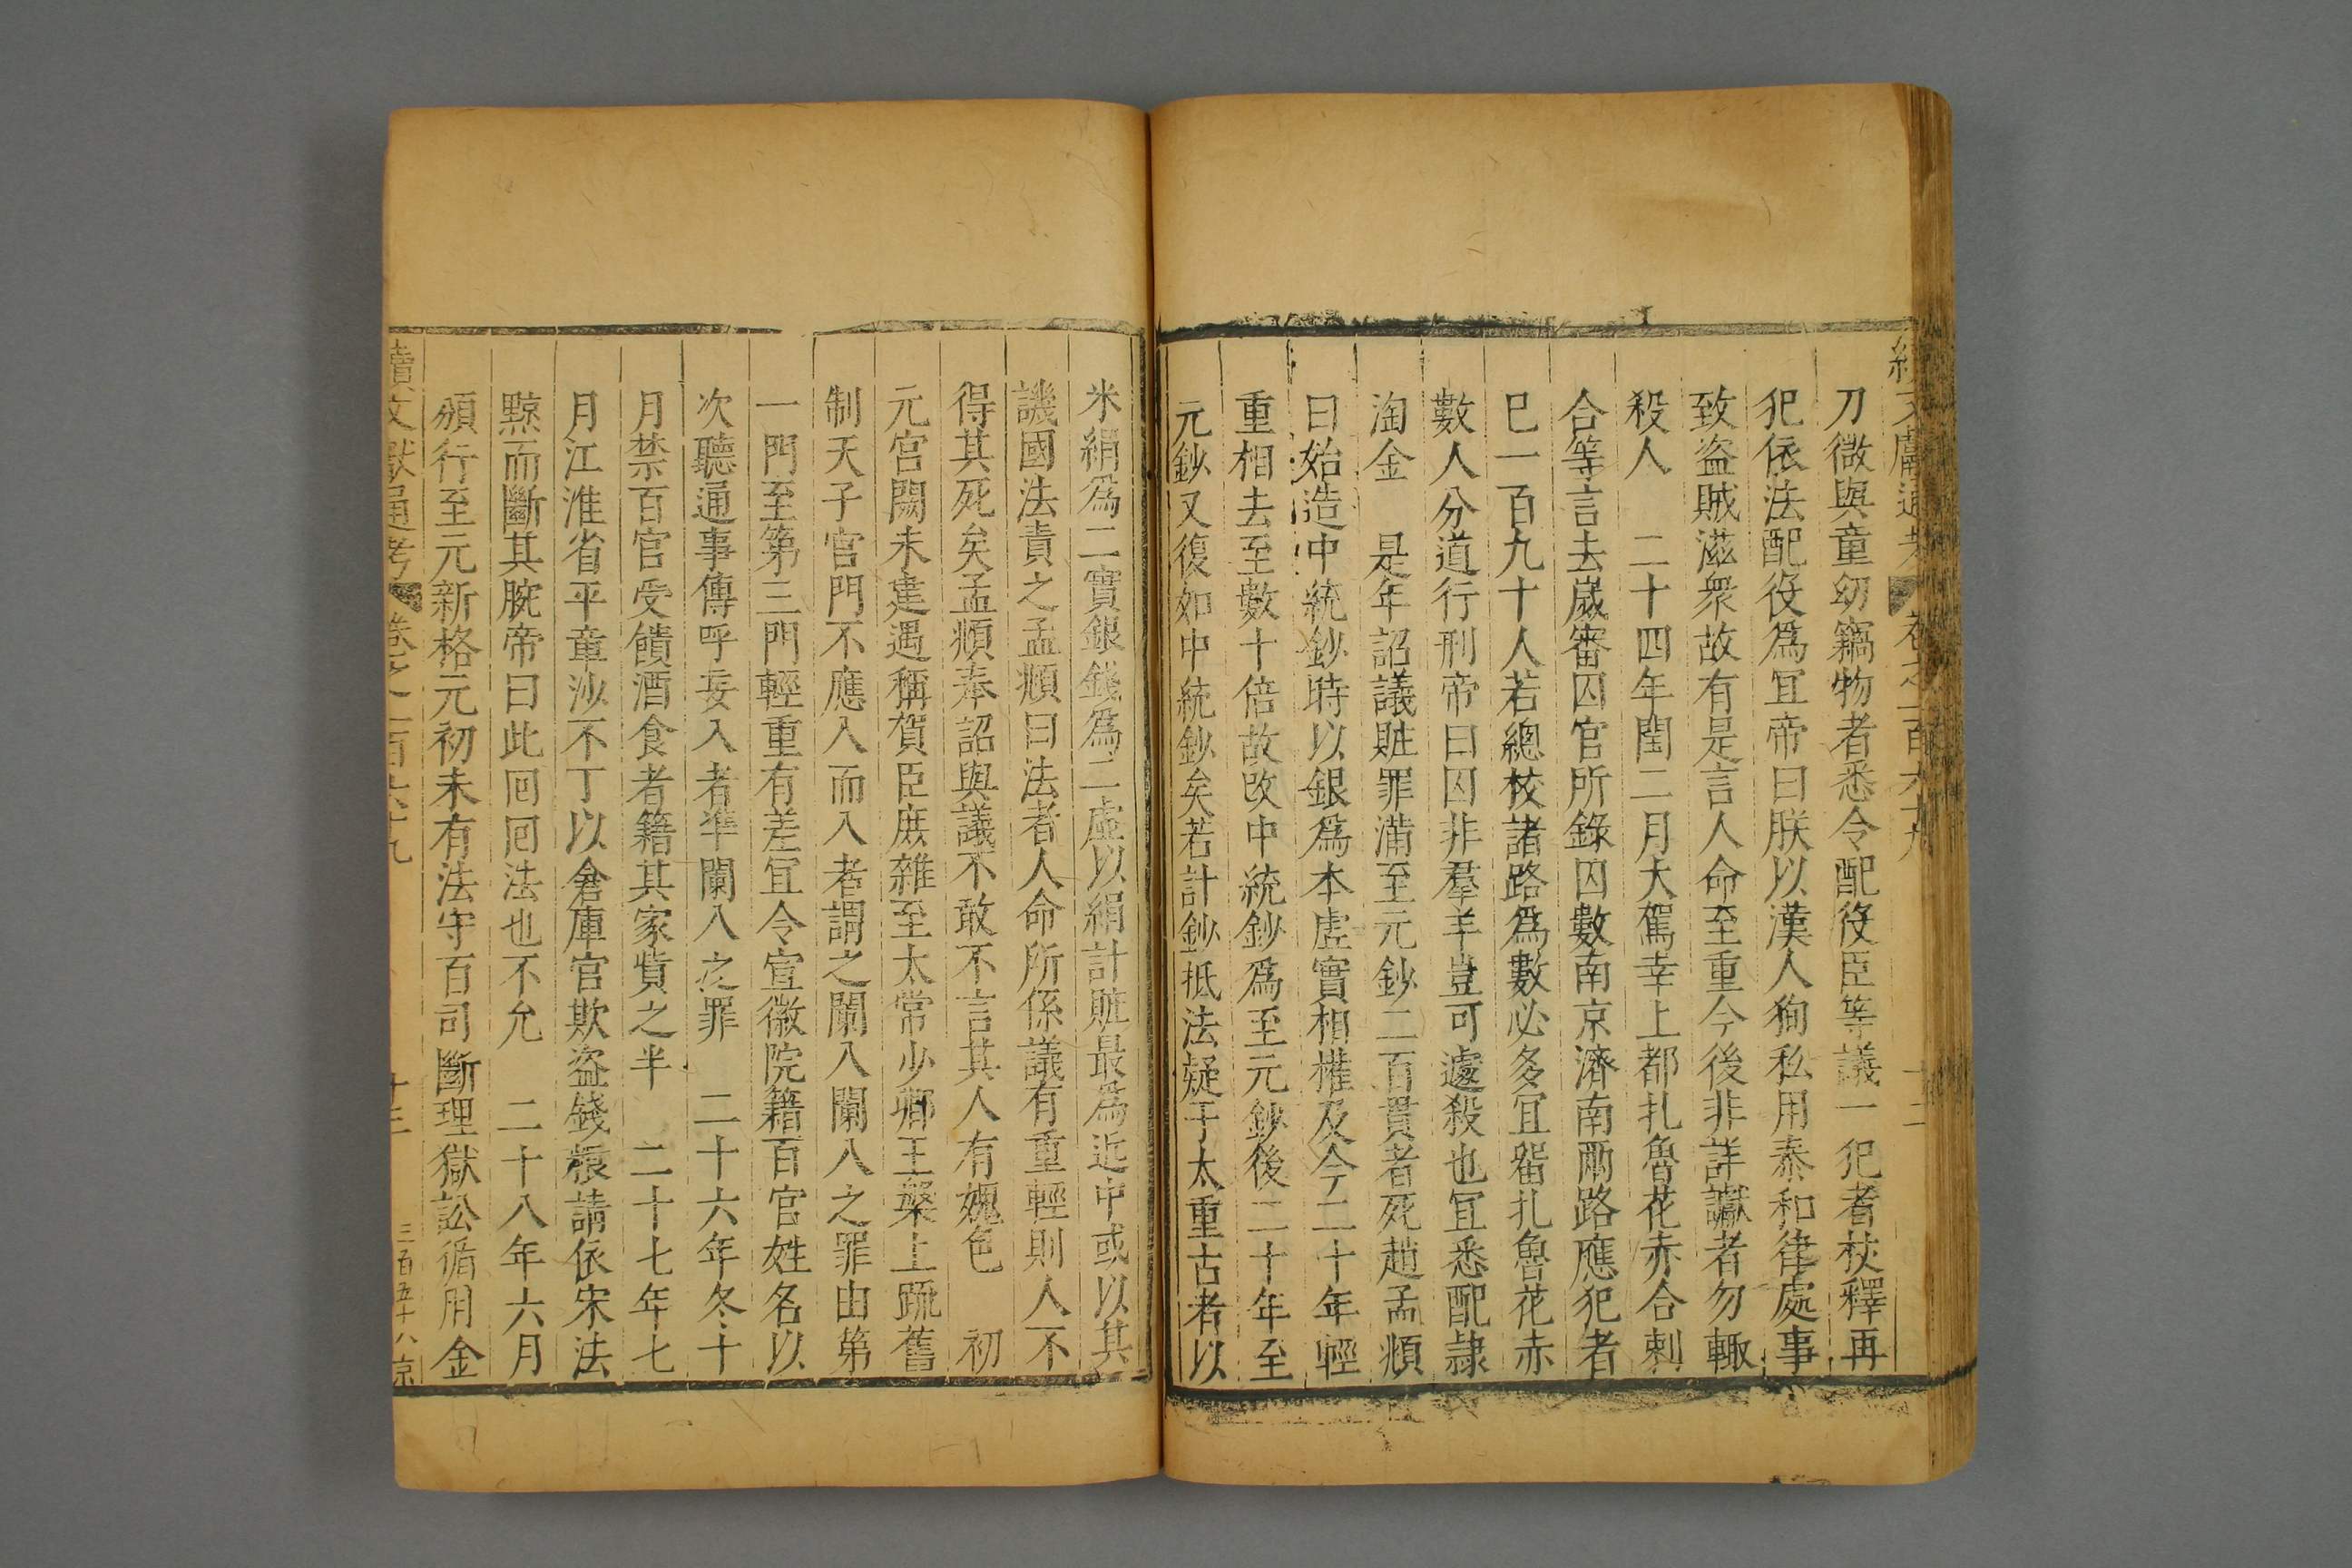 續文獻通考 卷之一百六十九
刀微與童幼竊物者悉令配役臣等議一犯者杖釋再
犯依法配役爲宜帝曰朕以漢人狥私用泰和律處事
致盜賊滋衆故有是言人命至重今後非詳讞者勿輙
殺人　二十四年閏二月大駕幸上都扎魯花赤合剌
合等言去歲審囚官所錄囚數南京濟南兩路應犯者
巳一百九十人若總校諸路爲數必多宜留扎魯花赤
數人分道行刑帝曰囚非羣羊豈可遽殺也宜悉配隷
淘金　是年詔議贓罪滿至元鈔二百貫者死趙孟頫
曰始造中統鈔時以銀爲本虛實相權及今二十年輕
重相去至數十倍故改中統鈔爲至元鈔後二十年至
元鈔又復如中統鈔矣若計鈔抵法疑于太重古者以
米絹爲二實銀錢爲二虛以絹計贓最爲近中或以其
譏國法責之孟頫曰法者人命所係議有重輕則人不
得其死矣孟頫奉詔與議不敢不言其人有媿色　初
元宮闕未建遇稱賀臣庶雜至太常少卿王槃上疏舊
制天子宮門不應入而入者謂之闌入闌入之罪由第
一門至第三門輕重有差宜令宣徽院籍百官姓名以
次聽通事傳呼妄入者準闌入之罪　二十六年冬十
月禁百官受饋酒食者籍其家貲之半　二十七年七
月江淮省平章沙不丁以倉庫官欺盜錢糧請依宋法
黥而斷其腕帝曰此囘囘法也不允　二十八年六月
頒行至元新格元初未有法守百司斷理獄訟循用金
續文獻通考 卷之一百六十九 十三 三百五十八 京